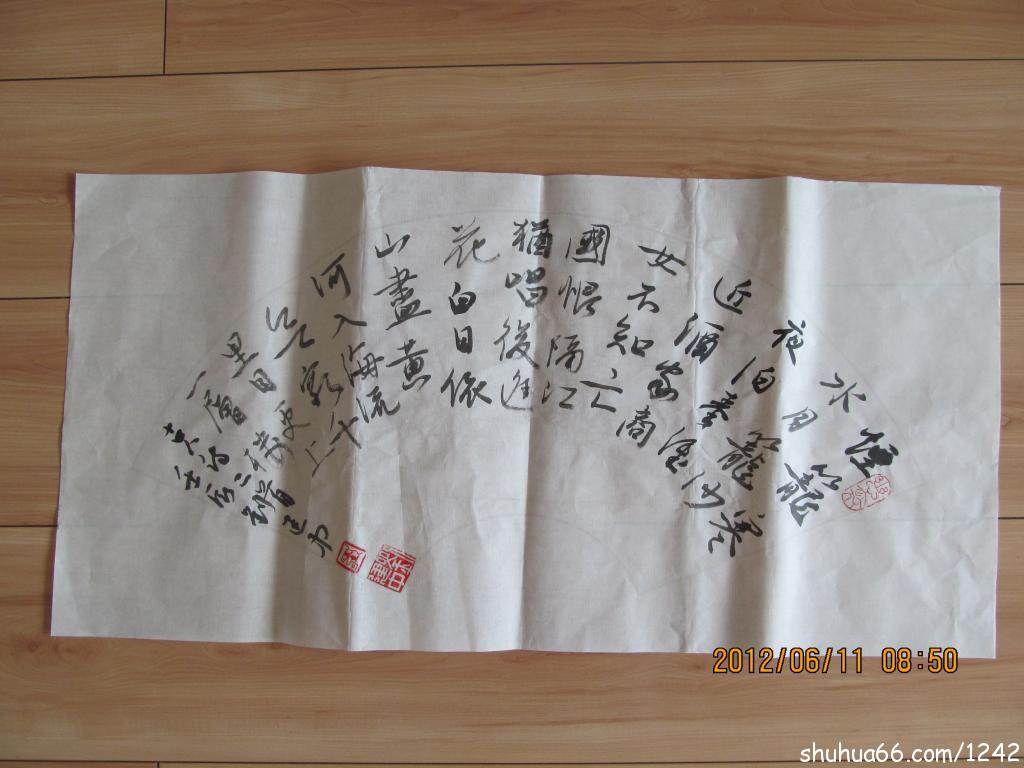 煙籠寒
水月籠沙
夜泊秦淮
近酒家商
女不知亡
國恨隔江
猶唱後庭
花白日依
山盡黃
河入海流
欲窮千
里目更上
一層樓
壬辰
2012/06/11 08:50
shuhua66.com/1242